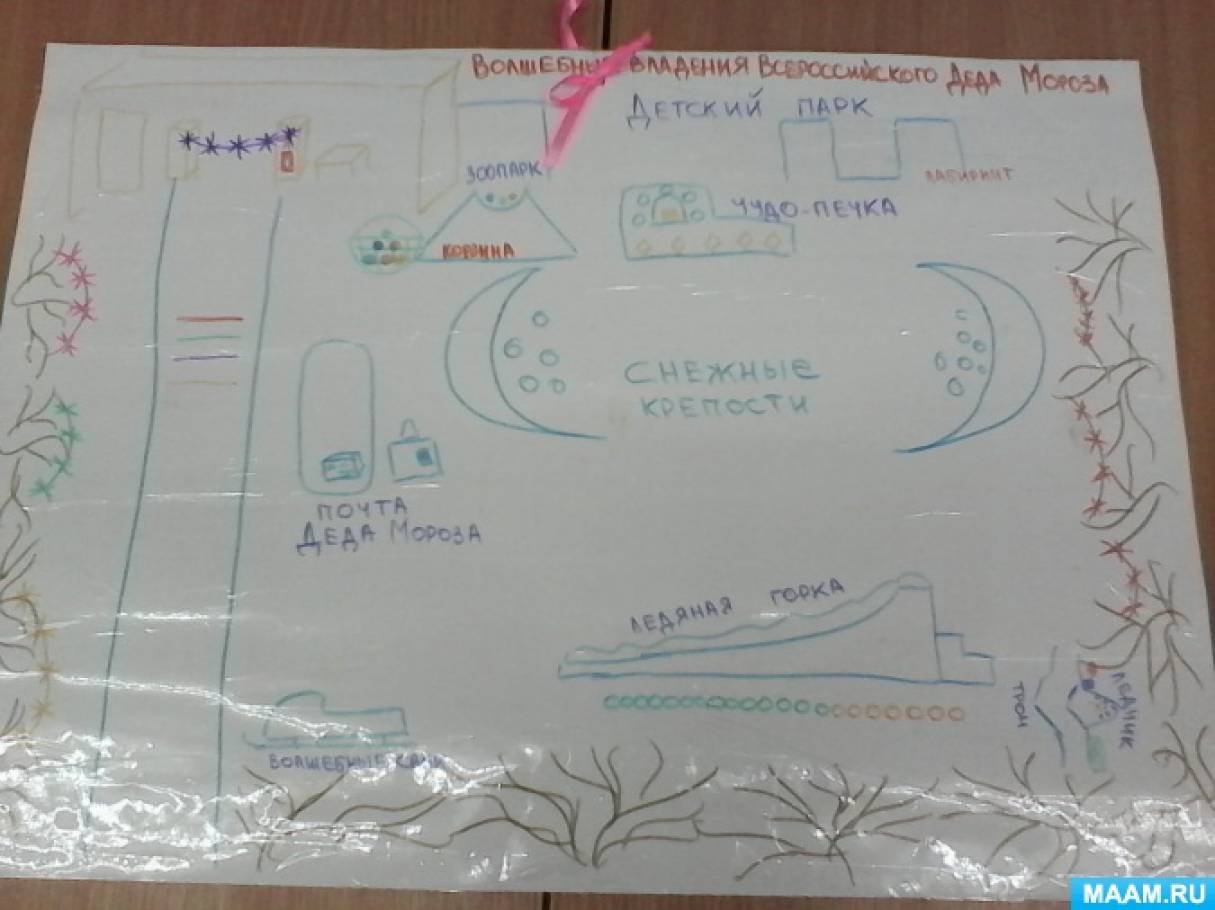 ВОЛШЕБНЫЕ ВЛАДЕНИЯ ВСЕРОССИЙСКОГО ДЕДА МОРОЗА
ДЕТСКИЙ ПАРК
ЗООПАРК
ЛАБИРИНТ
ЧУДО-ПЕЧКА
КОРЗИНА
СНЕЖНЫЕ
КРЕПОСТИ
ПОЧТА
ДЕДА МОРОЗА
ЛЕДЯНАЯ ГОРКА
ТРОН
ЛЕДЧИК
ВОЛШЕБНЫЕ САНИ
MAAM.RU